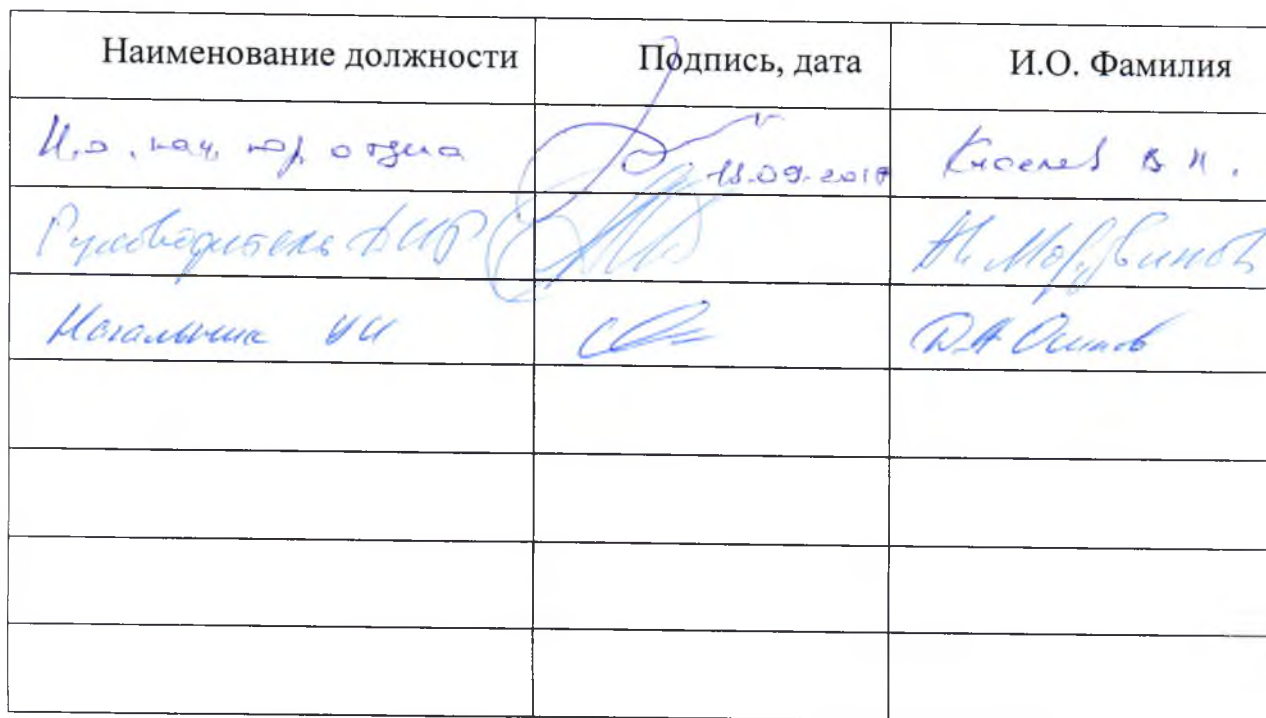 Наименование должности Подпись, дата И.О. Фамилия
И.о. нач. юр. отдела 18.09.201 Киселев В.Н.
Руководитель А.И. Мордвинов
Начальник УИ Д.А. Осипов